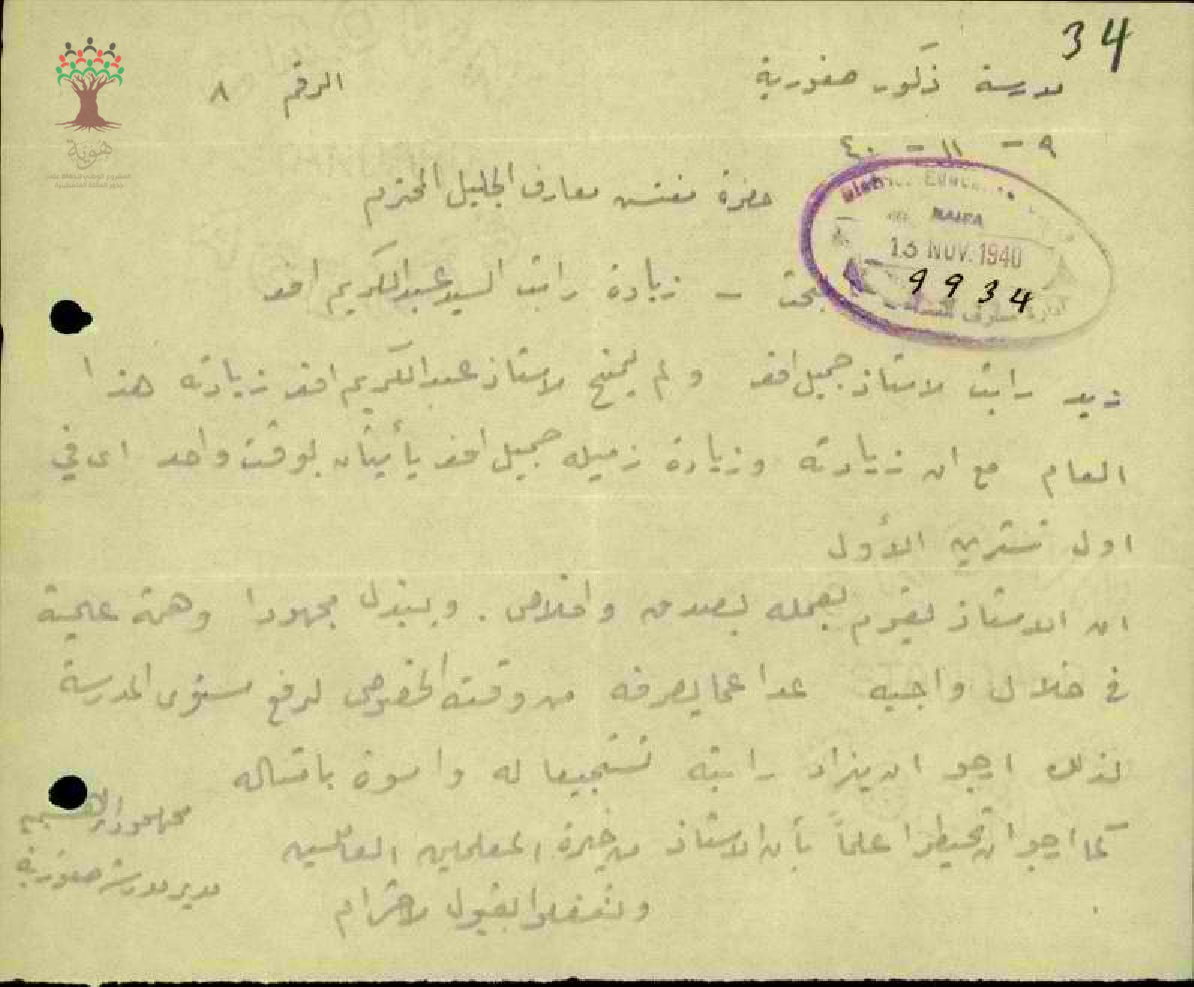 34
مدرسة ذكور صفورية الرقم ٨
٩ - ١١ - ٤٠
حضرة مفتش معارف الجليل المحترم
HAIFA
13 NOV. 1940
9934
بحث - زيادة راتب السيد عبد الكريم افند
زيد راتب الاستاذ جميل افند و لم يمنح الاستاذ عبد الكريم افند زيادته هذا
العام مع ان زيادته وزيادة زميله جميل افند يأتيان بوقت واحد اى في
اول تشرين الأول
ان الاستاذ يقوم بعمله بصدق واخلاص . ويبذل مجهودا وهمة عالية
في خلال واجبه عدا عما يصرفه من وقته الخصوصي لرفع مستوى المدرسة
لذلك ارجو ان يزاد راتبه تشجيعا له واسوة بامثاله
كما ارجو ان تحيطوا علماً بأن الاستاذ من خيرة المعلمين العاملين
وتفضلوا بقبول الاحترام
محمود
مدير مدرسة صفورية
هوية